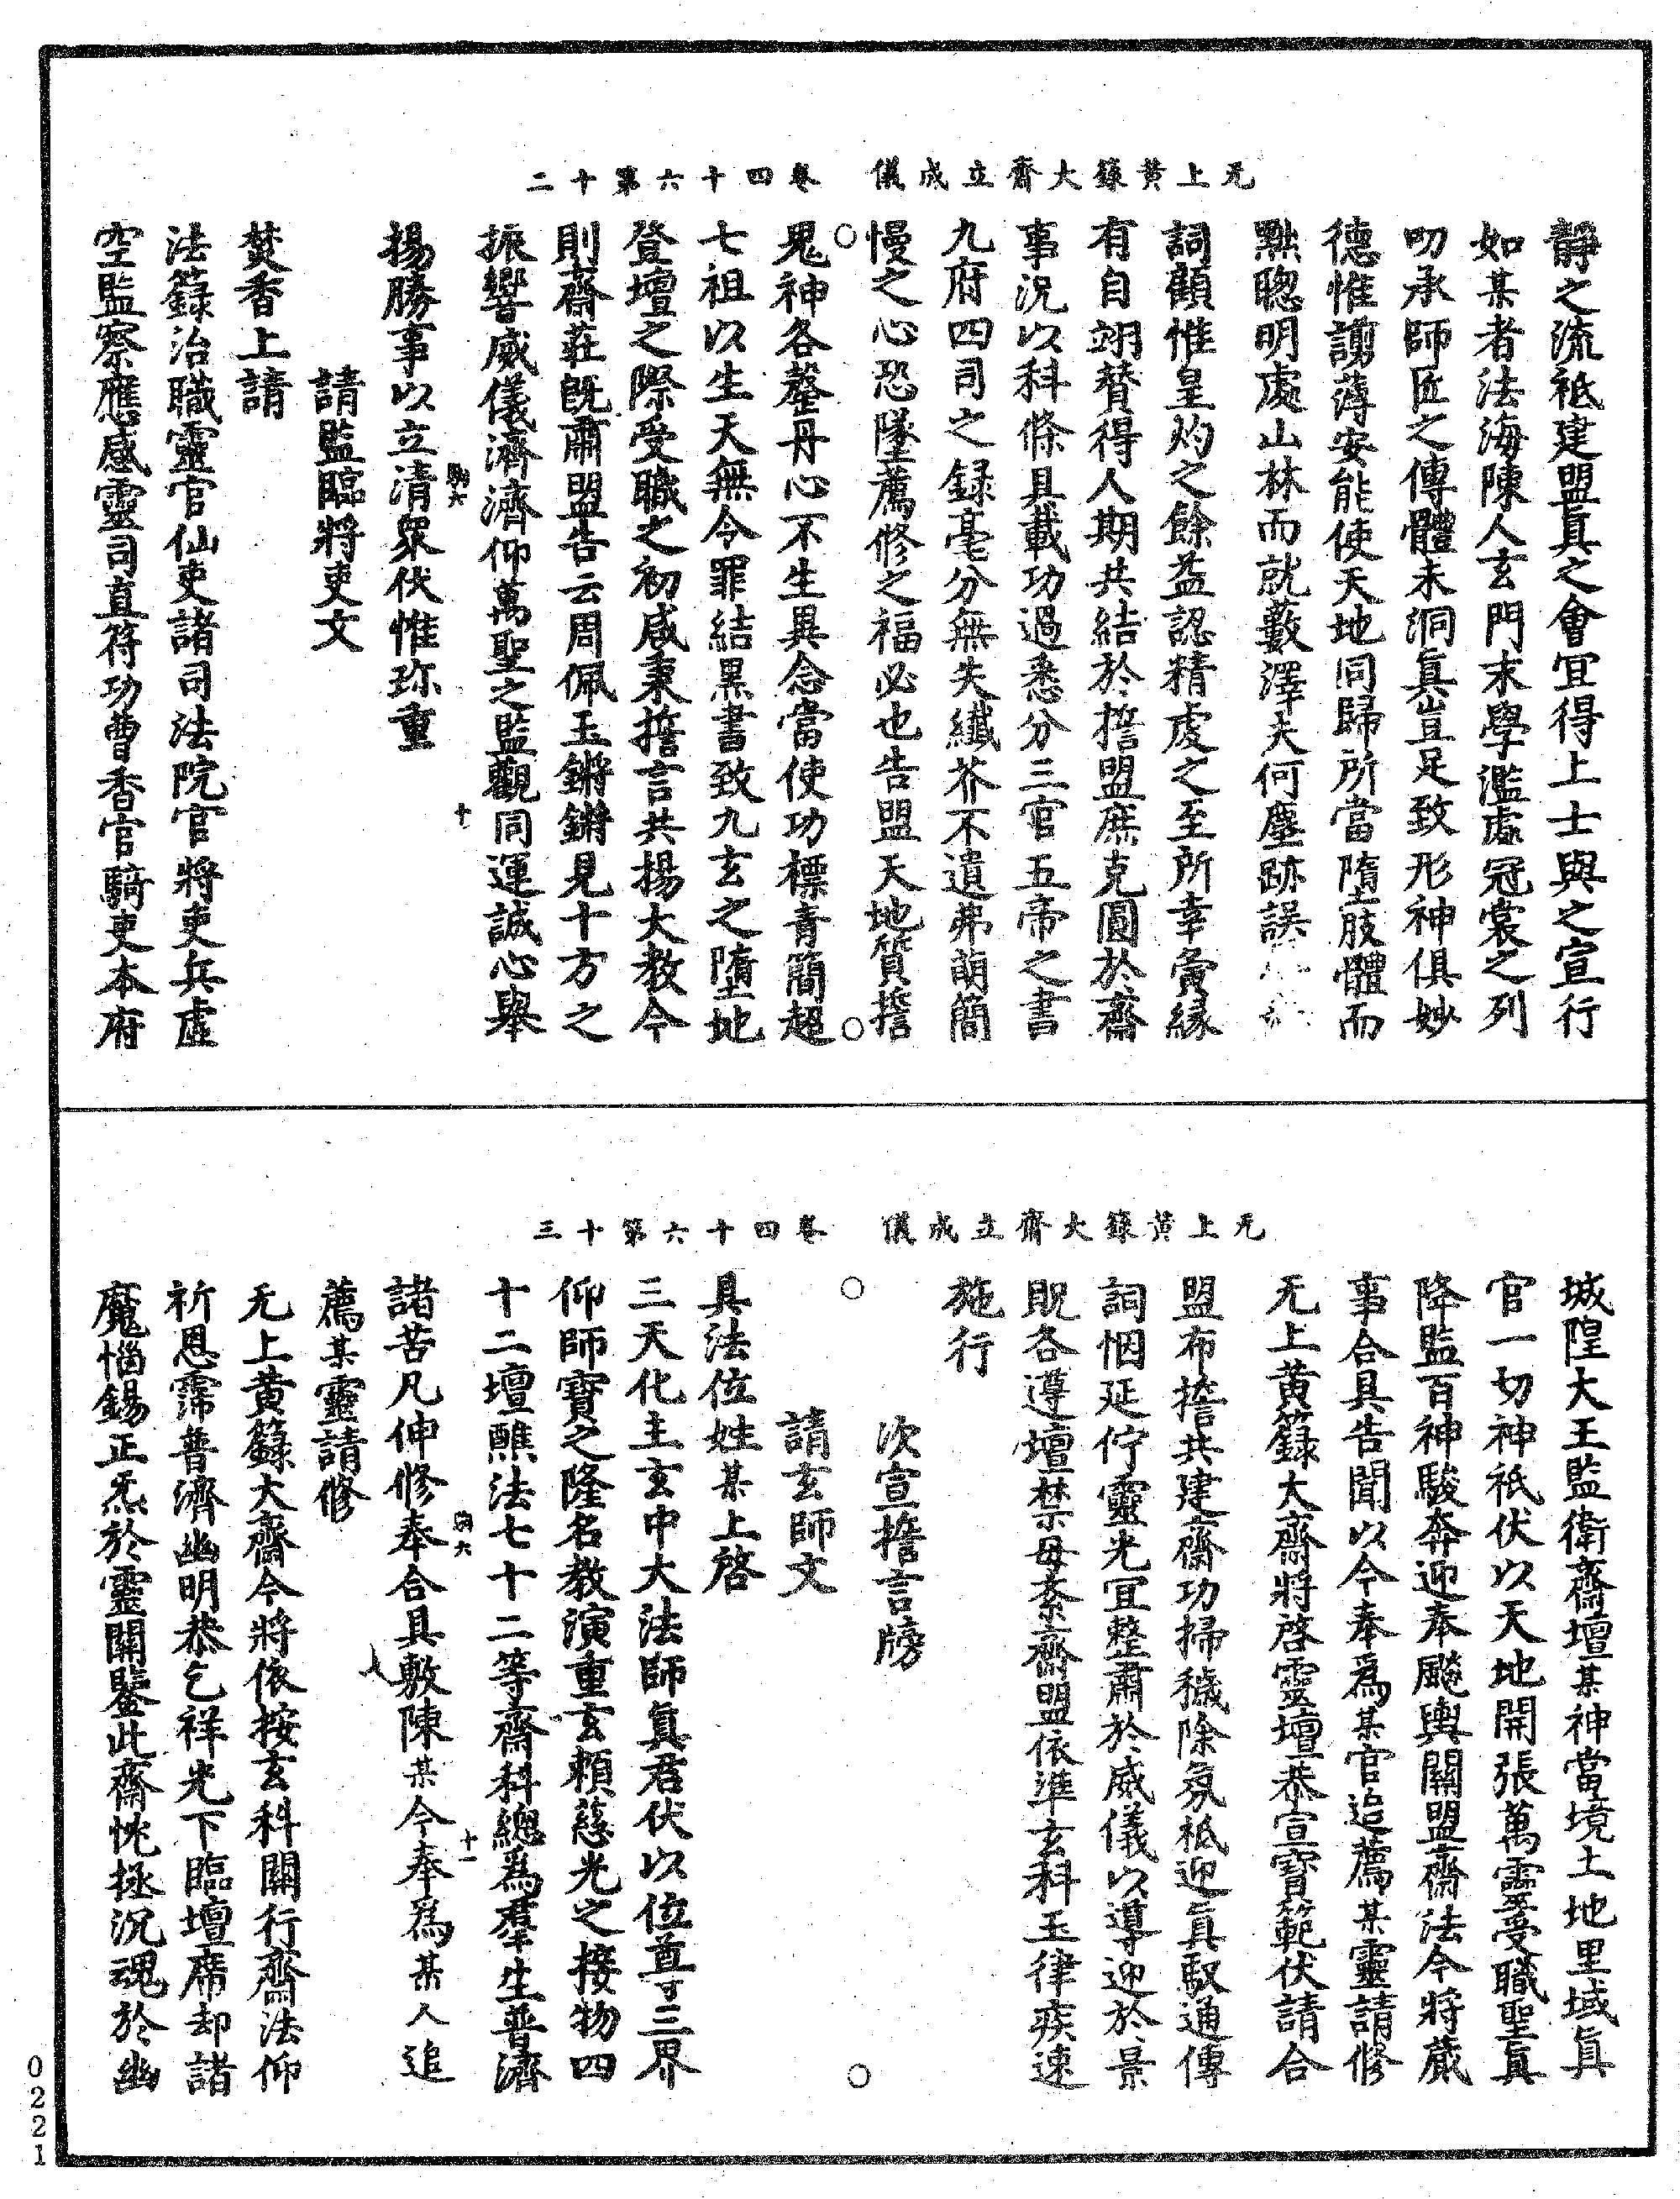 无上黃籙大齋立成儀 卷四十六第十二
靜之流祗建盟眞之會冝得上士與之宣行
如某者法海陳人玄門末學濫虛冠裳之列
叨承師匠之傳體未洞眞豈足致形神俱妙
德惟謭薄安能使天地同歸所當隳肢體而
黜聦明處山林而就藪澤夫何塵跡誤
詞顧惟皇灼之餘益認精虔之至所幸夤緣
有自翊賛得人期共結於擔盟庶克圓於齋
事況以科條具載功過悉分三官五帝之書
九府四司之録毫分無失纖芥不遺弗萌簡
慢之心恐墜薦修之福必也告盟天地質擔
鬼神各罄丹心不生異念當使功標青簡超
七祖以生天無令罪結黑書致九玄之墮地
登壇之際受職之初咸秉擔言共揚大教今
則齋莊旣肅盟告云周佩玉鏘鏘見十方之
振響威儀濟濟仰萬聖之監觀同運誠心舉
十
揚勝事以立清衆伏惟珎重
請監臨將吏文
焚香上請
法籙治職靈官仙吏諸司法院官將吏兵虛
空監察應感靈司直符功曹香官騎吏本府
无上黃籙大齋立成儀 卷四十六第十三
城隍大王監衛齋壇某神當境土地里域眞
官一切神祇伏以天地開張萬靈受職聖眞
降監百神駿奔迎奉飈輿關盟齋法今將蕆
事合具告聞以今奉爲某官追薦某靈請修
无上黃籙大齋將啓靈壇恭宣寶範伏請合
盟布擔共建齋功掃穢除氛祗迎眞馭通傳
詞悃延佇靈光冝整肅於威儀以導迎於景
貺各遵壇禁毋紊齋盟依準玄科玉律疾速
施行
次宣擔言牓
請玄師文
具法位姓某上啓
三天化主玄中大法師眞君伏以位尊三界
仰師寶之隆名教演重玄頼慈光之接物四
十二壇醮法七十二等齋科總爲羣生普濟
十一
諸苦凡伸修奉合具敷陳某今奉爲某人追
薦某靈請修
无上黃籙大齋今將依按玄科關行齋法仰
祈恩霈普濟幽明恭乞祥光下臨壇席却諸
魔惱錫正炁於靈關鑒此齋忱拯沉魂於幽
0221